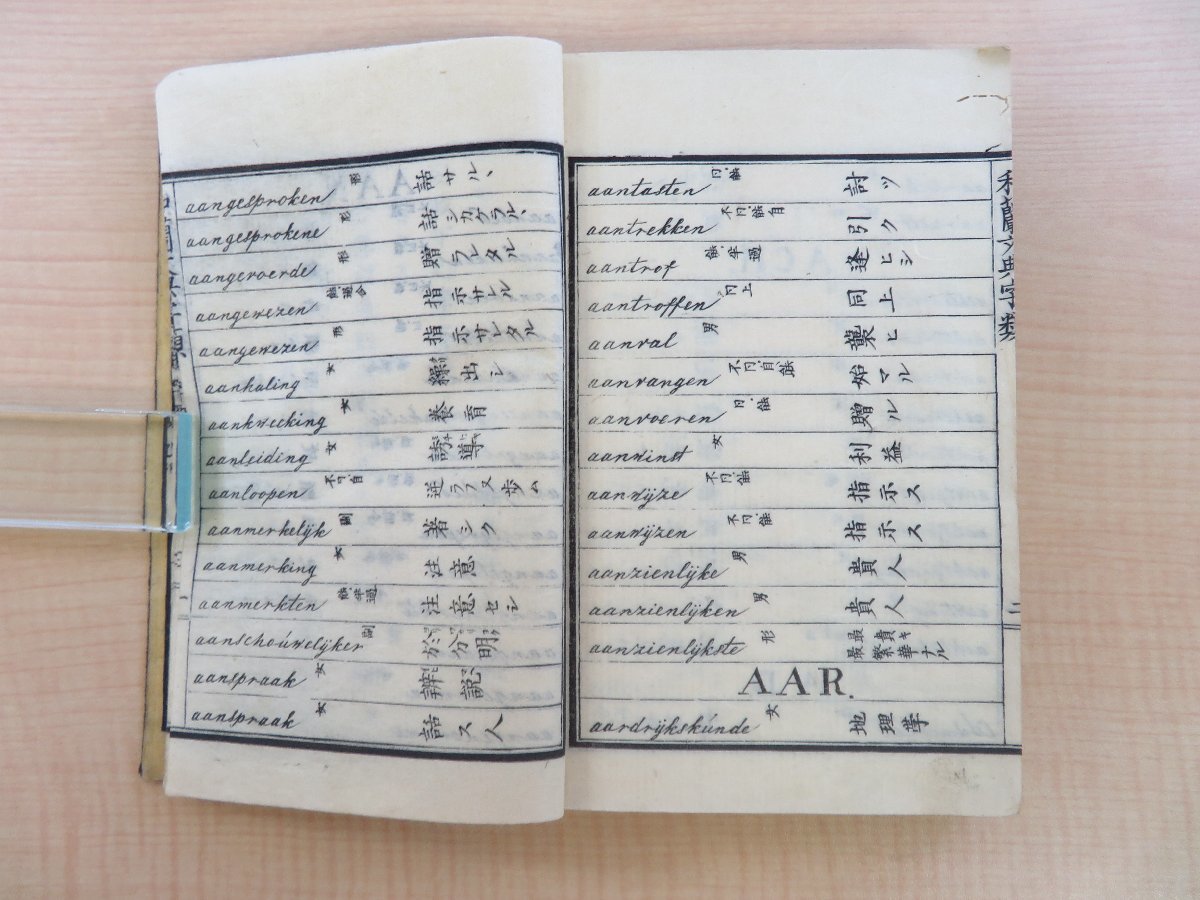 aangesproken 形 話サルヽ
aangesprokene 形 話シカケラルヽ
aangevoerde 形 贈ラレタル
aangewezen 指示サレル
aangewezen 形 指示サレタル
aanhaling 女 繰出シ
aankweeking 女 養育
aanleiding 女 誘導
aanloopen 不可自 逆ラフ又歩ム
aanmerkelijk 副 著シク
aanmerking 女 注意
aanmerkten 能半過 注意セシ
aanschoúwelijker 副 於分明
aanspraak 女 辨説
aanspraak 女 話ス人
aantasten 討ツ
aantrekken 引ク
aantrof 能半過 逢ヒシ
aantroffen 同上 同上
aanval 男 襲ヒ
aanvangen 始マル
aanvoeren 贈ル
aanwinst 女 利益
aanwijze 指示ス
aanwijzen 指示ス
aanzienlijke 男 貴人
aanzienlijken 男 貴人
aanzienlijkste 形 最貴キ 最繁華ナル
AAR.
aardrijkskúnde 女 地理學